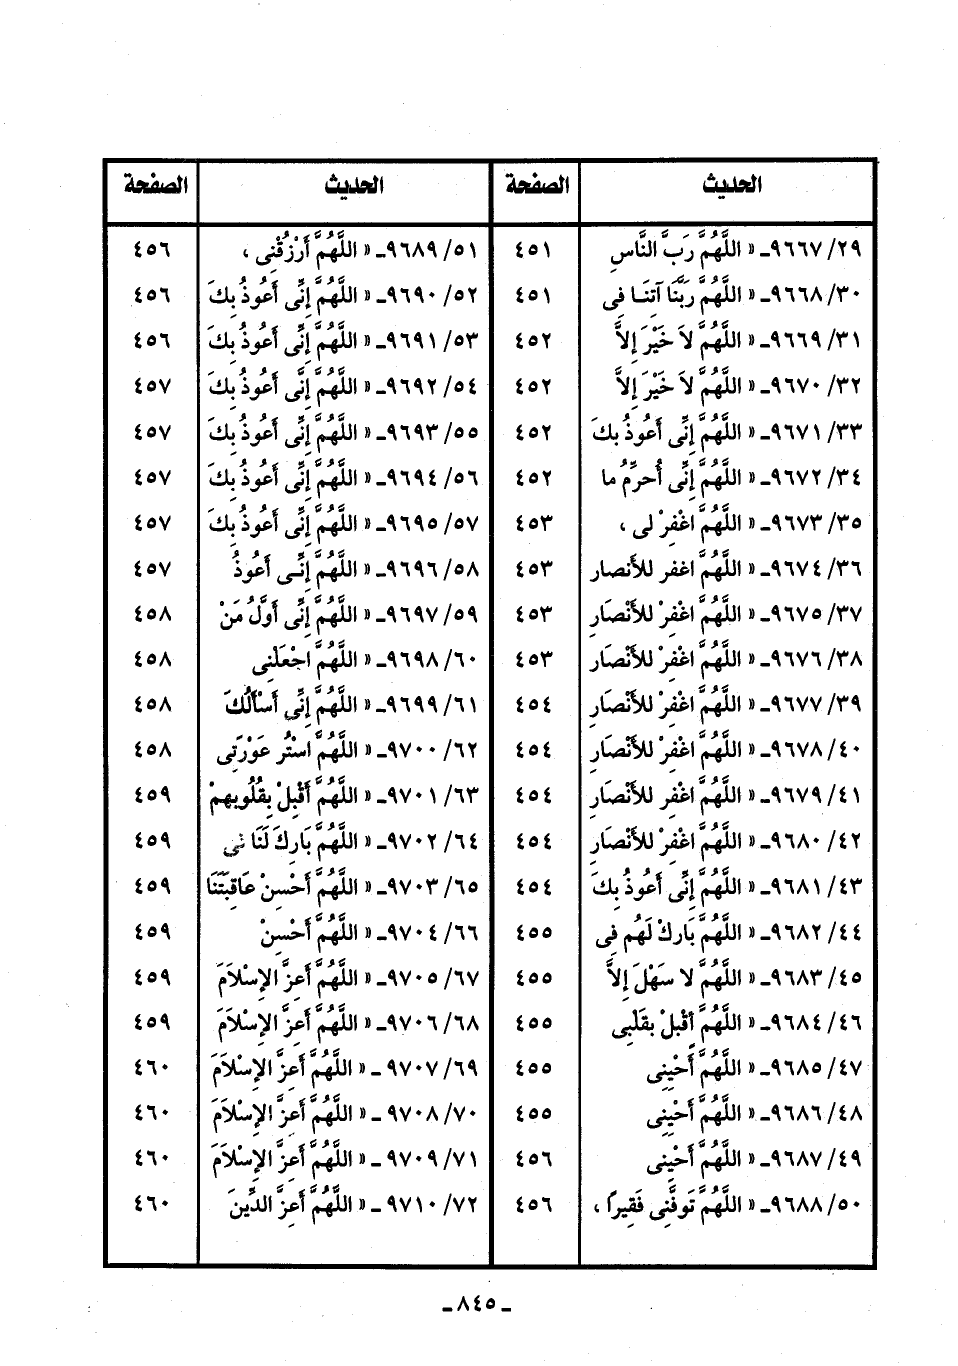 الحديث الصفحة الحديث الصفحة
٩٦٦٧/٢٩ـ « اللَّهُمَّ رَبَّ النَّاسِ ٤٥١ ٩٦٨٩/٥١ـ « اللَّهُمَّ أَرْزُقْنِى ، ٤٥٦
٩٦٦٨/٣٠ـ « اللَّهُمَّ رَبَّنَا آتِنَـا فِى ٤٥١ ٩٦٩٠/٥٢ـ « اللَّهُمَّ إِنِّى أَعُوذُ بِكَ ٤٥٦
٩٦٦٩/٣١ـ « اللَّهُمَّ لاَ خَيْرَ إِلاَّ ٤٥٢ ٩٦٩١/٥٣ـ « اللَّهُمَّ إِنِّى أَعُوذُ بِكَ ٤٥٦
٩٦٧٠/٣٢ـ « اللَّهُمَّ لاَ خَيْرَ إِلاَّ ٤٥٢ ٩٦٩٢/٥٤ـ « اللَّهُمَّ إِنَّى أَعُوذُ بِكَ ٤٥٧
٩٦٧١/٣٣ـ « اللَّهُمَّ إِنِّى أَعُوذُ بِكَ ٤٥٢ ٩٦٩٣/٥٥ـ « اللَّهُمَّ إِنِّى أَعُوذُ بِكَ ٤٥٧
٩٦٧٢/٣٤ـ « اللَّهُمَّ إِنِّى أُحرِّمُ ما ٤٥٢ ٩٦٩٤/٥٦ـ « اللَّهُمَّ إِنِّى أَعُوذُ بِكَ ٤٥٧
٩٦٧٣/٣٥ـ « اللَّهُمَّ اغْفِرْ لى ، ٤٥٣ ٩٦٩٥/٥٧ـ « اللَّهُمَّ إِنِّى أَعُوذُ بِكَ ٤٥٧
٩٦٧٤/٣٦ـ « اللَّهُمَّ اغفر للأَنصار ٤٥٣ ٩٦٩٦/٥٨ـ « اللَّهُمَّ إِنِّـى أَعُوذُ ٤٥٧
٩٦٧٥/٣٧ـ « اللَّهُمَّ اغْفِرْ للأَنْصَارِ ٤٥٣ ٩٦٩٧/٥٩ـ « اللَّهُمَّ إِنِّى أَوَّلُ مَنْ ٤٥٨
٩٦٧٦/٣٨ـ « اللَّهُمَّ اغْفِرْ للأَنْصَارِ ٤٥٣ ٩٦٩٨/٦٠ـ « اللَّهُمَّ اجْعَلْنِى ٤٥٨
٩٦٧٧/٣٩ـ « اللَّهُمَّ اغْفِرْ للأَنْصَارِ ٤٥٤ ٩٦٩٩/٦١ـ « اللَّهُمَّ إِنِّي أَسْأَلُكَ ٤٥٨
٩٦٧٨/٤٠ـ « اللَّهُمَّ اغْفِرْ للأَنْصَارِ ٤٥٤ ٩٧٠٠/٦٢ـ « اللَّهُمَّ اسْتُر عَوْرَتِى ٤٥٨
٩٦٧٩/٤١ـ « اللَّهُمَّ اغفر للأَنْصَارِ ٤٥٤ ٩٧٠١/٦٣ـ « اللَّهُمَّ أَقْبِلْ بِقُلُوبِهِمْ ٤٥٩
٩٦٨٠/٤٢ـ « اللَّهُمَّ اغْفِرْ للأَنْصَارِ ٤٥٤ ٩٧٠٢/٦٤ـ « اللَّهُمَّ بَارِكَ لَنَا في ٤٥٩
٩٦٨١/٤٣ـ « اللَّهُمَّ إِنِّى أَعُوذُ بِكَ ٤٥٤ ٩٧٠٣/٦٥ـ « اللَّهُمَّ أَحْسِنْ عَاقِبَتَنَا ٤٥٩
٩٦٨٢/٤٤ـ « اللَّهُمَّ بَارِكْ لَهُم فِى ٤٥٥ ٩٧٠٤/٦٦ـ « اللَّهُمَّ أَحْسِنْ ٤٥٩
٩٦٨٣/٤٥ـ « اللَّهُمَّ لا سَهْلَ إِلاَّ ٤٥٥ ٩٧٠٥/٦٧ـ « اللَّهُمَّ أَعِزَّ الإِسْلاَمَ ٤٥٩
٩٦٨٤/٤٦ـ « اللَّهُمَّ أَقْبِلْ بِقَلْبِى ٤٥٥ ٩٧٠٦/٦٨ـ « اللَّهُمَّ أَعِزَّ الإِسْلاَمَ ٤٥٩
٩٦٨٥/٤٧ـ « اللَّهُمَّ أَحْيِنِى ٤٥٥ ٩٧٠٧/٦٩ـ « اللَّهُمَّ أَعِزَّ الإِسْلاَمَ ٤٦٠
٩٦٨٦/٤٨ـ « اللَّهُمَّ أَحْيِنِى ٤٥٥ ٩٧٠٨/٧٠ـ « اللَّهُمَّ أَعِزَّ الإِسْلاَمَ ٤٦٠
٩٦٨٧/٤٩ـ « اللَّهُمَّ أَحْيِنِى ٤٥٦ ٩٧٠٩/٧١ـ « اللَّهُمَّ أَعِزَّ الإِسْلاَمَ ٤٦٠
٩٦٨٨/٥٠ـ « اللَّهُمَّ تَوَفَّنِى فَقِيراً ، ٤٥٦ ٩٧١٠/٧٢ـ « اللَّهُمَّ أَعِزَّ الدِّينَ ٤٦٠
ـ ٨٤٥ ـ